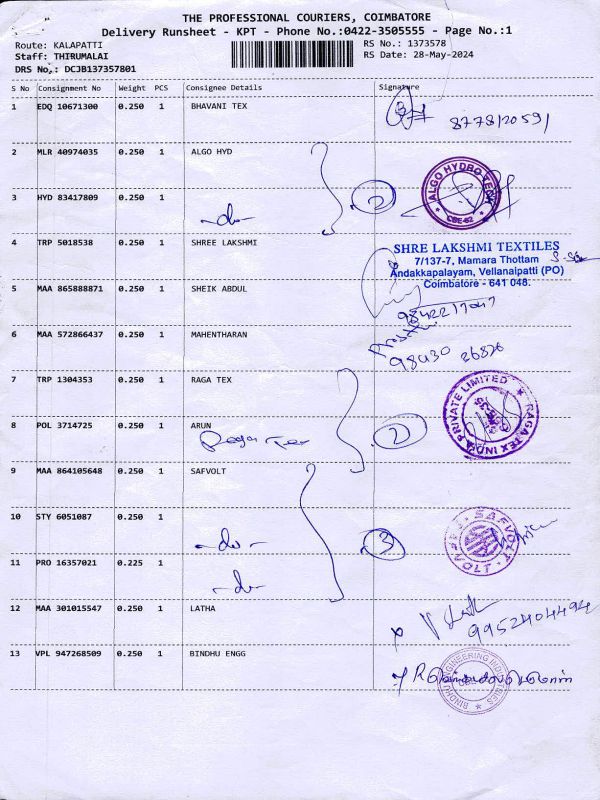 THE PROFESSIONAL COURIERS, COIMBATORE
Delivery Runsheet - KPT - Phone No.:0422-3505555 - Page No.:1
Route: KALAPATTI RS No.: 1373578
Staff: THIRUMALAI RS Date: 28-May-2024
DRS No.: DCJB137357801
S No Consignment No Weight PCS Consignee Details Signature
1 EDQ 10671300 0.250 1 BHAVANI TEX
2 MLR 40974035 0.250 1 ALGO HYD
ALGO HYDRO TECH
CBE-62
3 HYD 83417809 0.250 1 -do- 2
4 TRP 5018538 0.250 1 SHREE LAKSHMI
SHRE LAKSHMI TEXTILES
7/137-7, Mamara Thottam
Andakkapalayam, Vellanaipatti (PO)
Coimbatore - 641 048.
5 MAA 865888871 0.250 1 SHEIK ABDUL
6 MAA 572866437 0.250 1 MAHENTHARAN
98430 26826
7 TRP 1304353 0.250 1 RAGA TEX
RAGA TEX INDIA PRIVATE LIMITED
8 POL 3714725 0.250 1 ARUN
Raga Tex 2
9 MAA 864105648 0.250 1 SAFVOLT
SAFVOLT
SAFVOLT
10 STY 6051087 0.250 1 -do- 3
11 PRO 16357021 0.225 1 -do-
12 MAA 301015547 0.250 1 LATHA
9952404494
13 VPL 947268509 0.250 1 BINDHU ENGG
BINDHU ENGINEERING INDUSTRIES